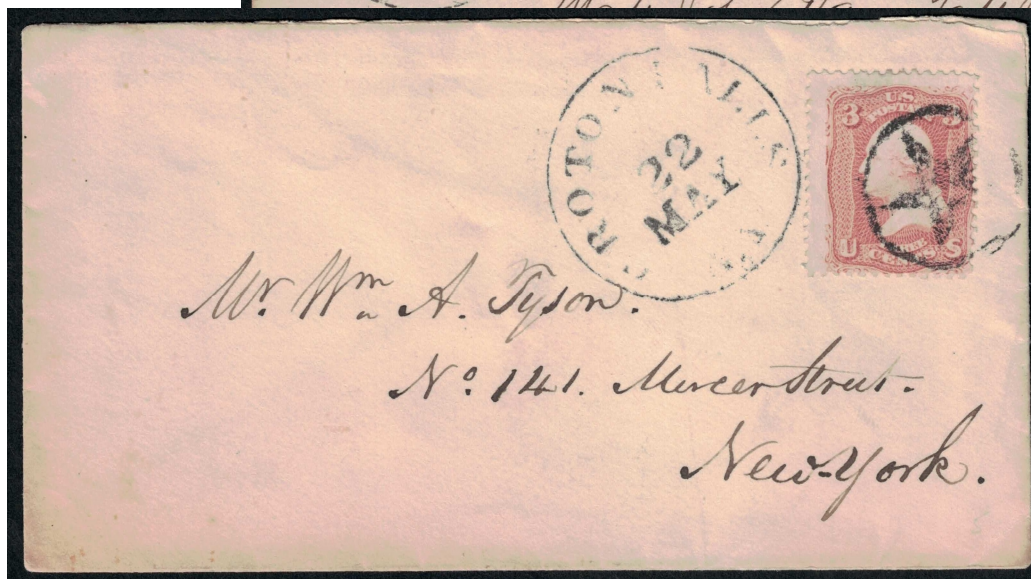 CROTON FALLS
22
MAY
3
U.S.
POSTAGE
3
U
CENTS
S
Mr. Wm A. Tyson.
No. 141. Mercer Street.
New-York.